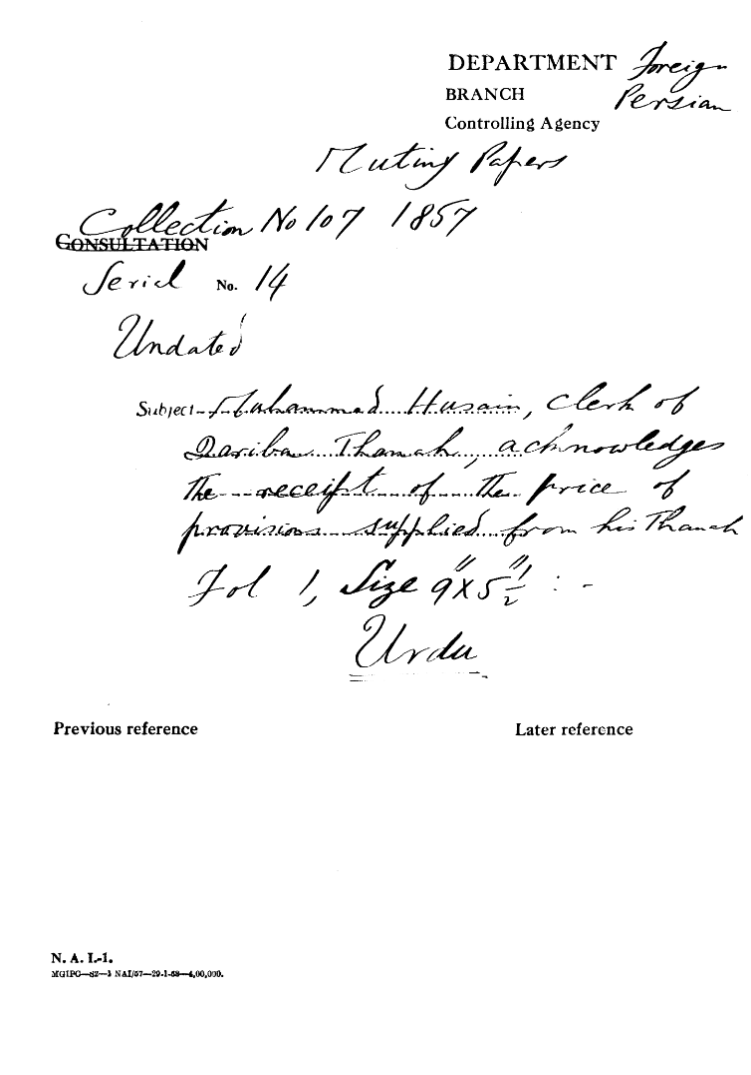 DEPARTMENT Foreign
BRANCH Persian
Controlling Agency
Mutiny Papers
Collection No 107 1857
CONSULTATION
Serial No. 14
Undated
Subject—Muhammad Husain, Clerk of
Dariba Thanah, acknowledges
the receipt of the price of
provisions supplied from his Thanah
Fol 1, Size 9" x 5 1/2" : -
Urdu
Previous reference Later reference
N. A. I.-1.
MGIPC—S2—3 NAI/57—29-1-58—4,00,000.